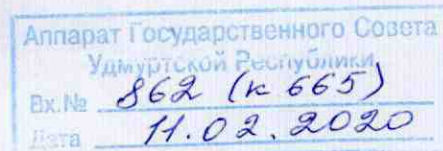 Аппарат Государственного Совета
Удмуртской Республики
Вх.№ 862 (к 665)
Дата 11.02.2020